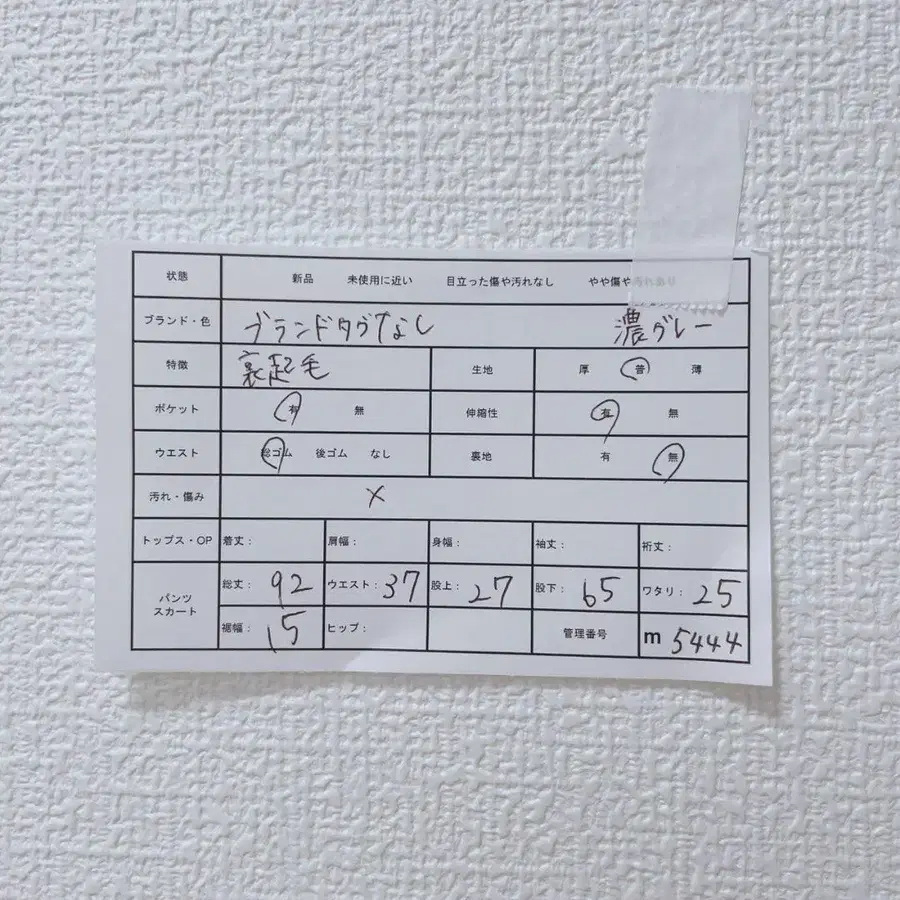 状態 新品 未使用に近い 目立った傷や汚れなし やや傷や汚れあり
ブランド・色 ブランドタグなし 濃グレー
特徴 裏起毛 生地 厚 普 薄
ポケット 有 無 伸縮性 有 無
ウエスト 総ゴム 後ゴム なし 裏地 有 無
汚れ・傷み ×
トップス・OP 着丈: 肩幅: 身幅: 袖丈: 裄丈:
パンツ スカート 総丈: 92 ウエスト: 37 股上: 27 股下: 65 ワタリ: 25
裾幅: 15 ヒップ: 管理番号 m 5444